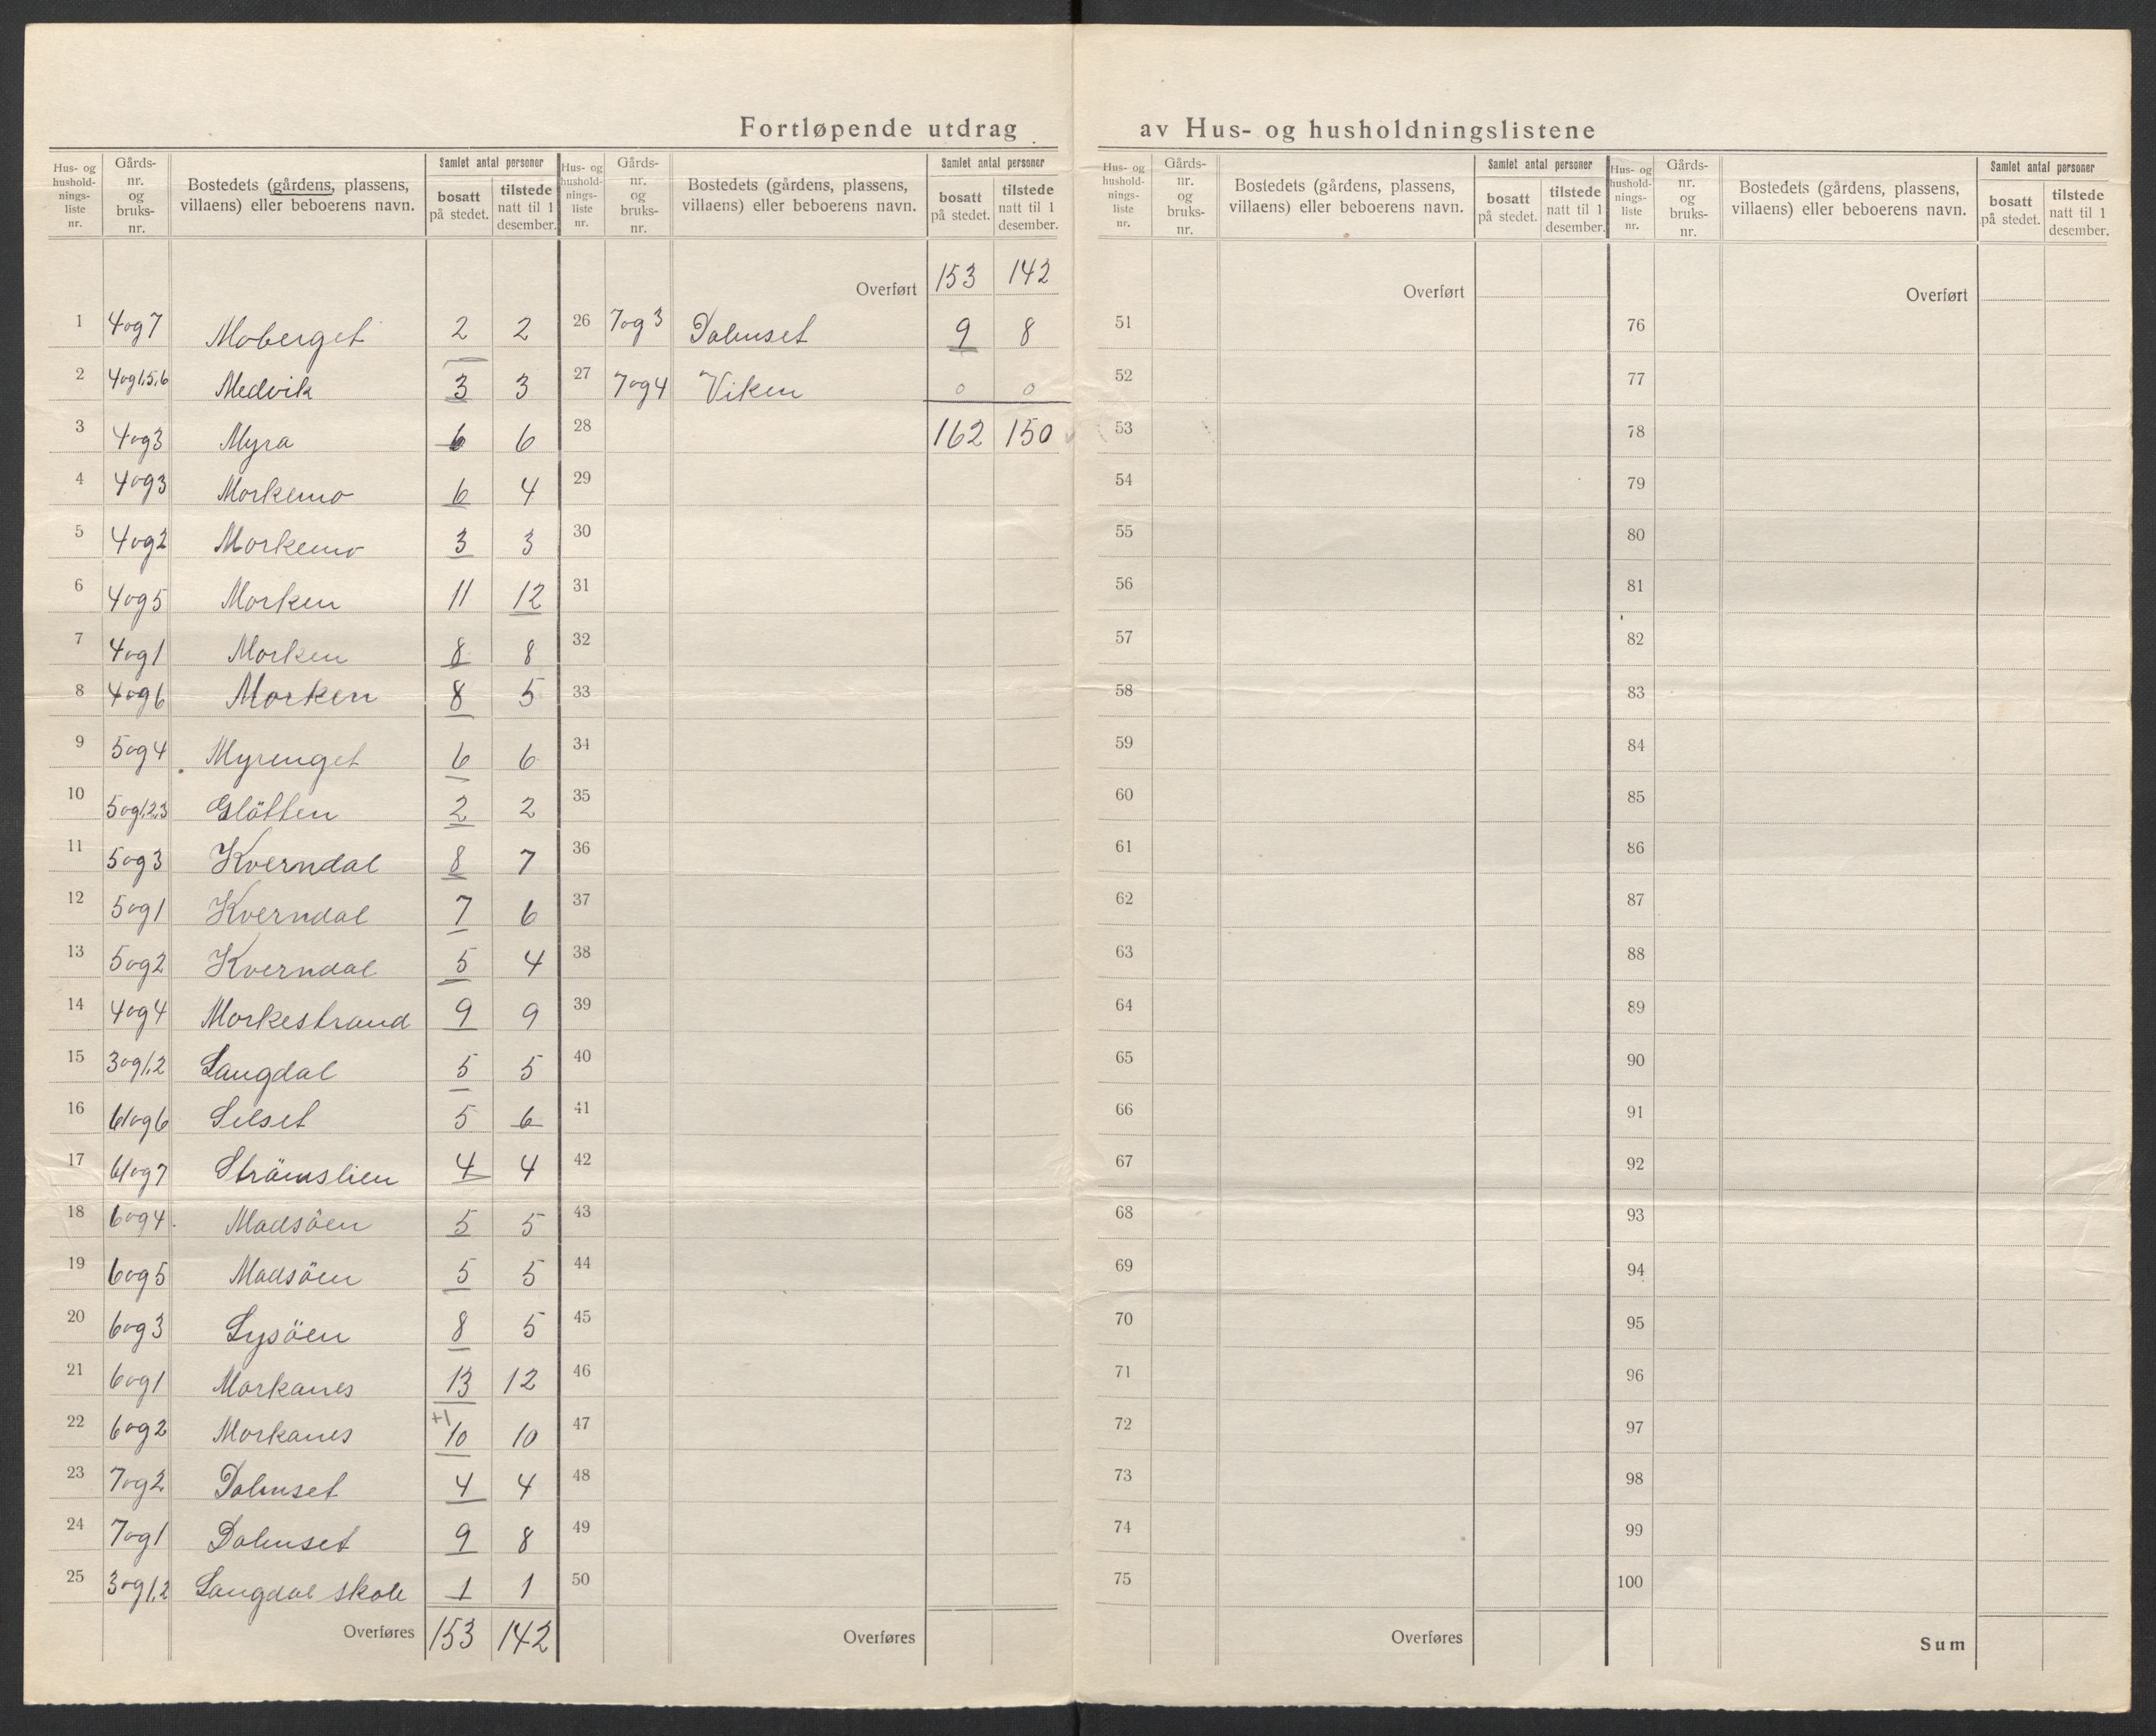 Fortløpende utdrag av Hus- og husholdningslistene
Hus- og hushold- nings- liste nr. | Gårds- nr. og bruks- nr. | Bostedets (gårdens, plassens, villaens) eller beboerens navn. | Samlet antal personer | bosatt på stedet. | tilstede natt til 1 desember.
1 4og7 Moberget 2 2
2 4og1,5,6 Medvik 3 3
3 4og3 Myra 6 6
4 4og3 Morkemo 6 4
5 4og2 Morkemo 3 3
6 4og5 Morken 11 12
7 4og1 Morken 8 8
8 4og6 Morken 8 5
9 5og4 Myrenget 6 6
10 5og1,2,3 Glötten 2 2
11 5og3 Kverndal 8 7
12 5og1 Kverndal 7 6
13 5og2 Kverndal 5 4
14 4og4 Morkestrand 9 9
15 3og1,2 Langdal 5 5
16 61og6 Silset 5 6
17 61og7 Strömslien 4 4
18 6og4 Madsöen 5 5
19 6og5 Madsöen 5 5
20 6og3 Lysöen 8 5
21 6og1 Morkanes 13 12
22 6og2 Morkanes +1 10 10
23 7og2 Dalmset 4 4
24 7og1 Dalmset 9 8
25 3og1,2 Langdal skole 1 1
Overføres 153 142
Hus- og hushold- nings- liste nr. | Gårds- nr. og bruks- nr. | Bostedets (gårdens, plassens, villaens) eller beboerens navn. | Samlet antal personer | bosatt på stedet. | tilstede natt til 1 desember.
Overført 153 142
26 7og3 Dalmset 9 8
27 7og4 Viken 0 0
28 162 150
29
30
31
32
33
34
35
36
37
38
39
40
41
42
43
44
45
46
47
48
49
50
Overføres
Hus- og hushold- nings- liste nr. | Gårds- nr. og bruks- nr. | Bostedets (gårdens, plassens, villaens) eller beboerens navn. | Samlet antal personer | bosatt på stedet. | tilstede natt til 1 desember.
Overført
51
52
53
54
55
56
57
58
59
60
61
62
63
64
65
66
67
68
69
70
71
72
73
74
75
Overføres
Hus- og hushold- nings- liste nr. | Gårds- nr. og bruks- nr. | Bostedets (gårdens, plassens, villaens) eller beboerens navn. | Samlet antal personer | bosatt på stedet. | tilstede natt til 1 desember.
Overført
76
77
78
79
80
81
82
83
84
85
86
87
88
89
90
91
92
93
94
95
96
97
98
99
100
Sum